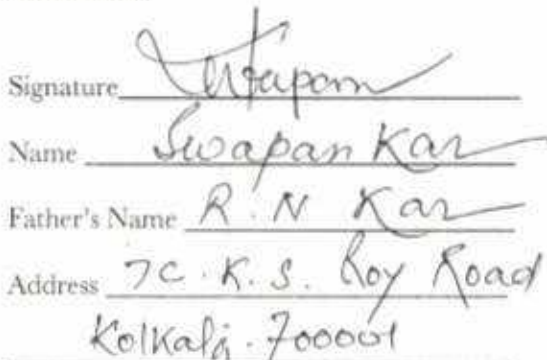 Signature
Name Swapan Kar
Father's Name R. N Kar
Address 7C. K. S. Roy Road
Kolkata. 700001